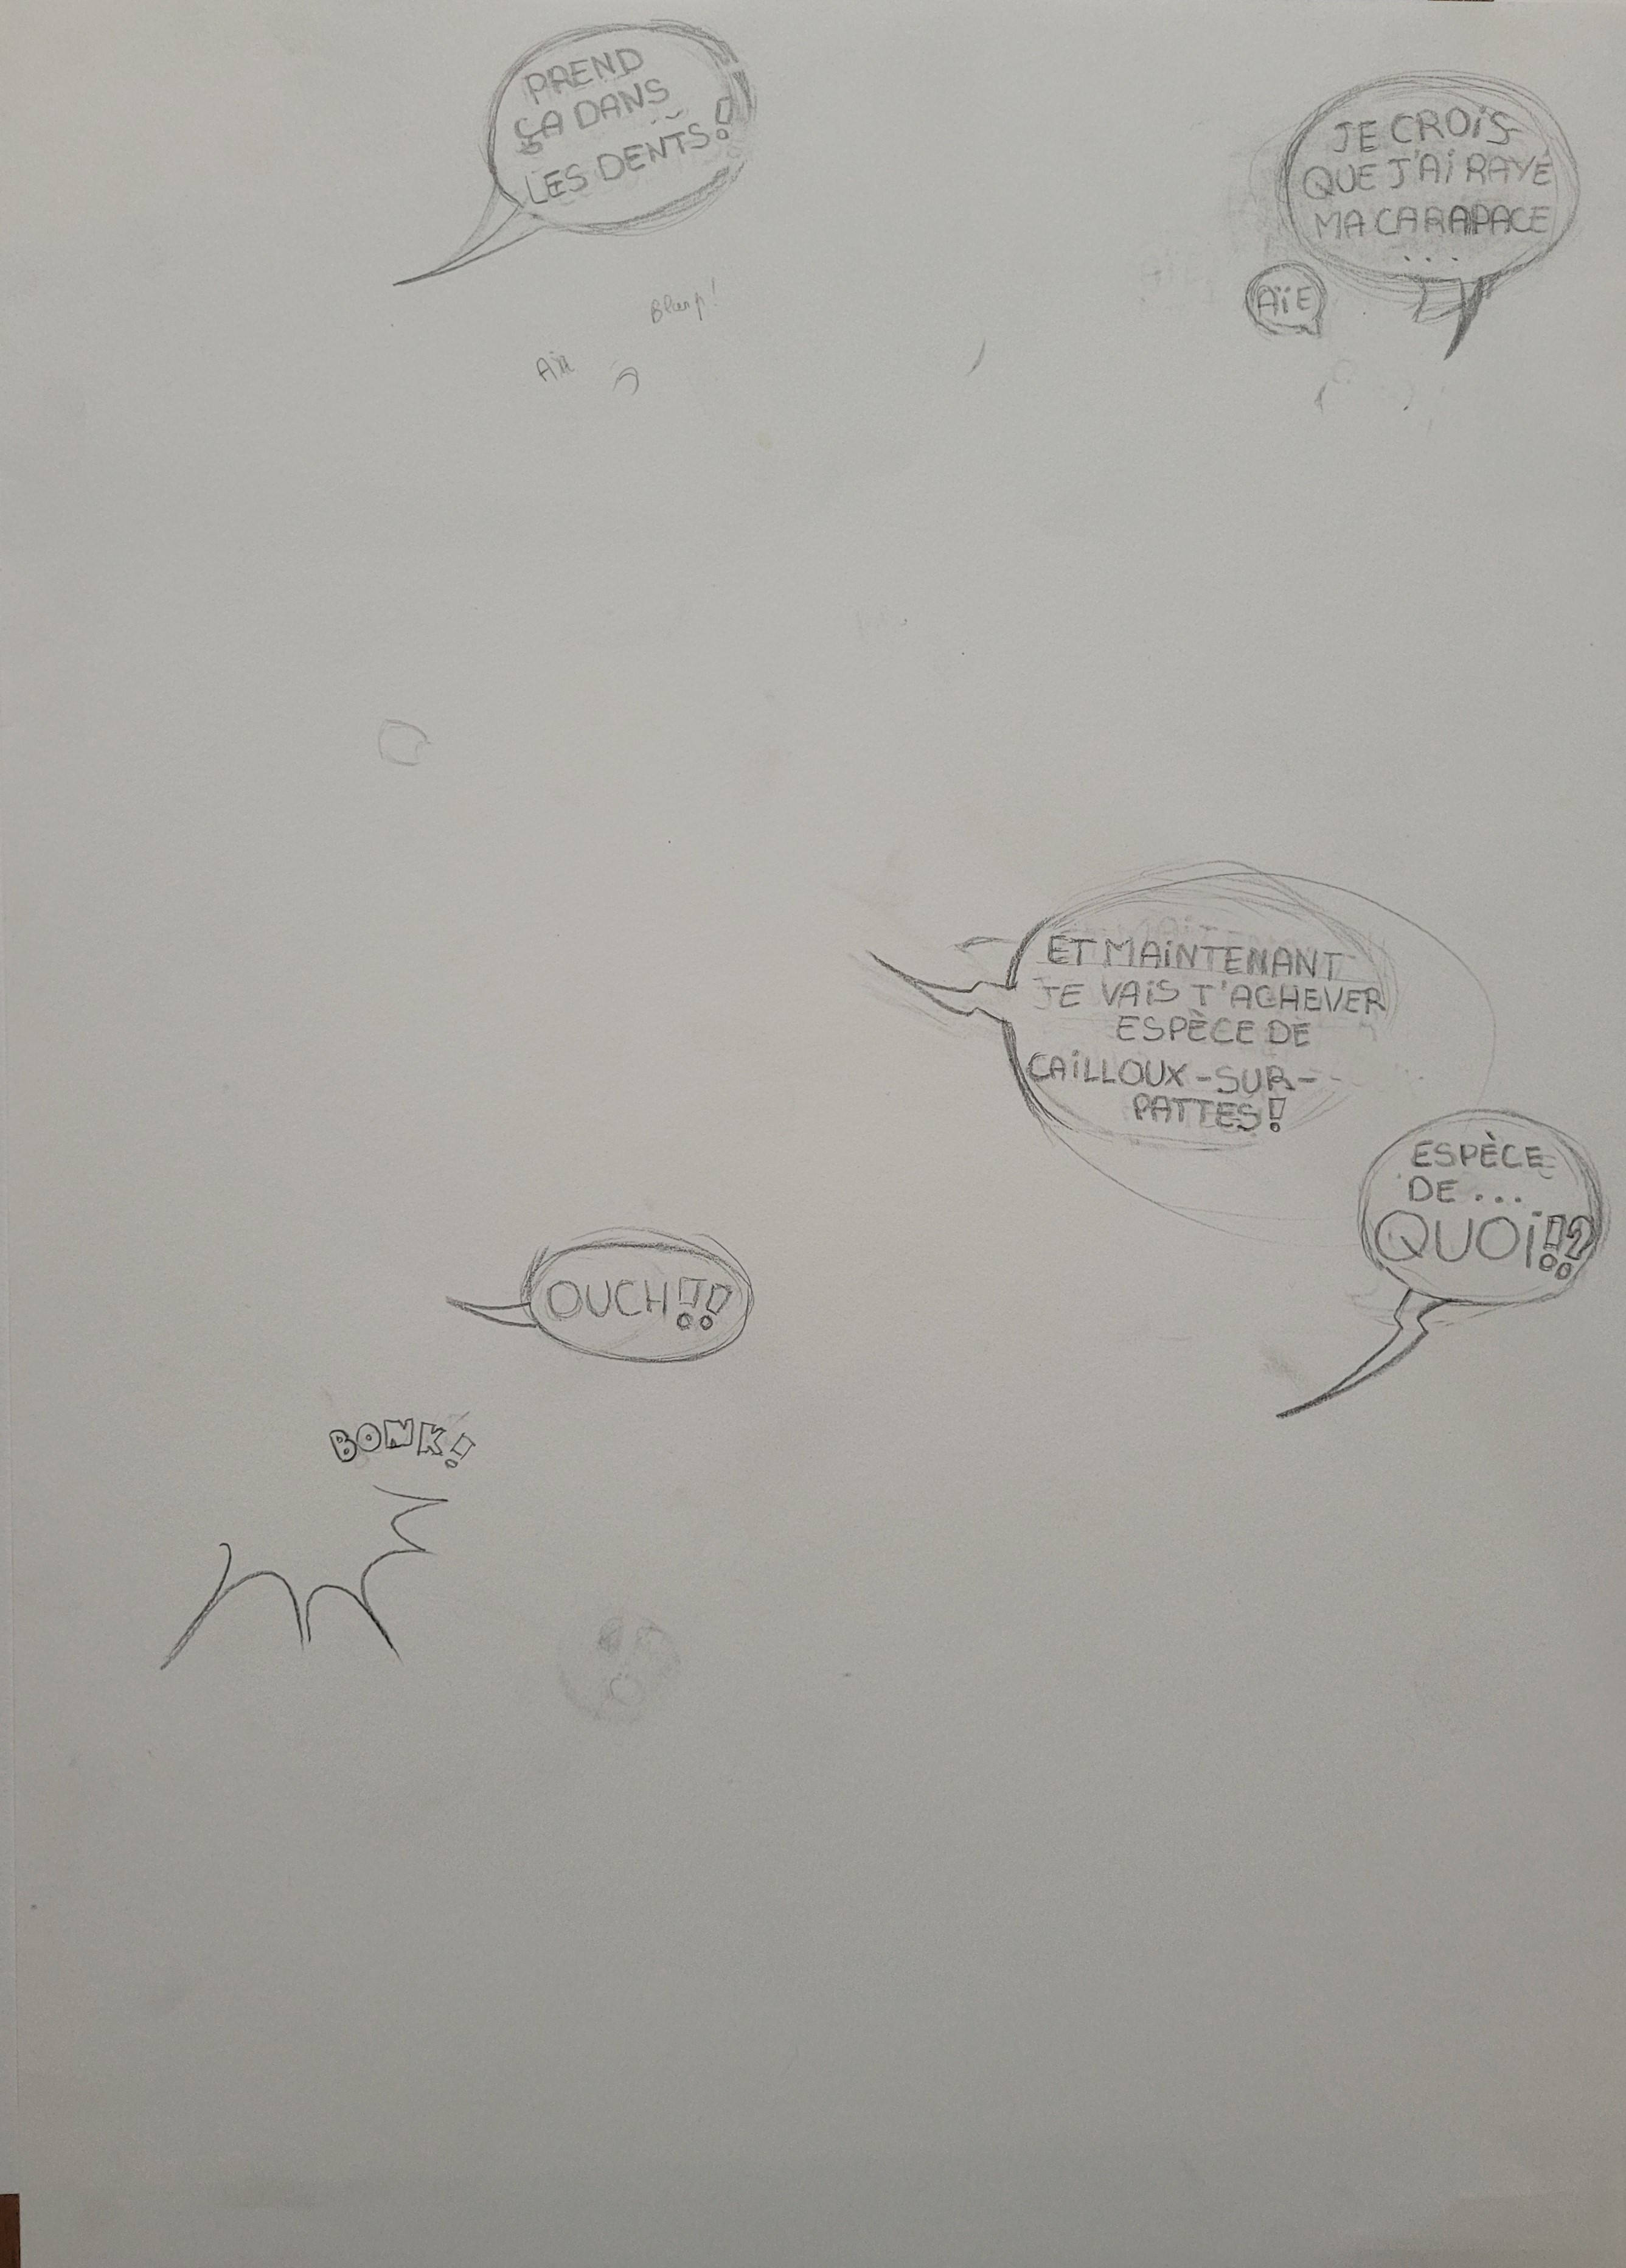 PREND
ÇA DANS
LES DENTS!
JE CROiS
QUE J'Ai RAYÉ
MA CARAPACE
...
AÏE
Blamp!
Aïe
ET MAiNTENANT
JE VAiS T'ACHEVER
ESPÈCE DE
CAiLLOUX-SUR-
PATTES!
ESPÈCE
DE...
QUOi!!?
OUCH!!
BONK!